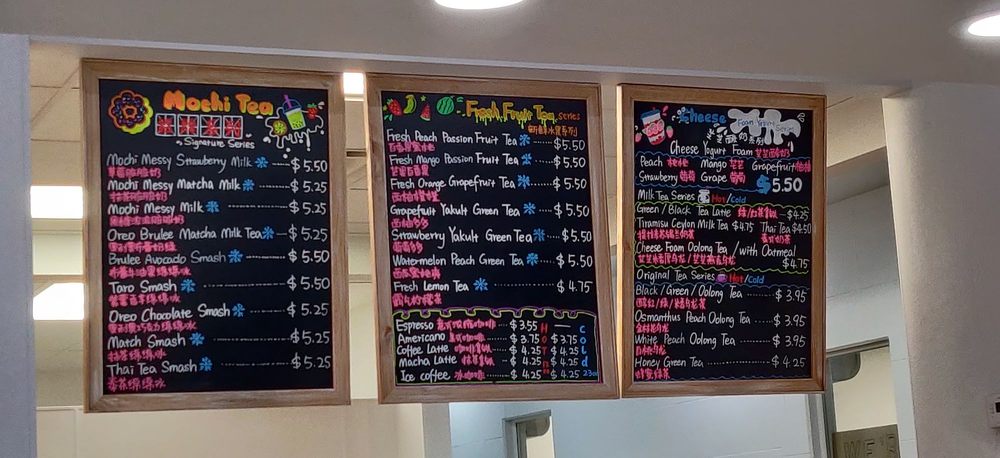 Mochi Tea
Signature Series
Mochi Messy Strawberry Milk $5.50
草莓脏脏奶
Mochi Messy Matcha Milk $5.25
抹茶脏脏奶
Mochi Messy Milk $5.25
Oreo Brulee Matcha Milk Tea $5.25
Brulee Avocado Smash $5.50
Taro Smash $5.50
Oreo Chocolate Smash $5.25
Match Smash $5.25
抹茶绵绵冰
Thai Tea Smash $5.25
泰茶绵绵冰
Fresh Fruit Tea series
新鲜水果系列
Fresh Peach Passion Fruit Tea $5.50
百香果蜜桃
Fresh Mango Passion Fruit Tea $5.50
芒果百香果
Fresh Orange Grapefruit Tea $5.50
西柚橙橙
Grapefruit Yakult Green Tea $5.50
西柚多多
Strawberry Yakult Green Tea $5.50
草莓多多
Watermelon Peach Green Tea $5.50
Fresh Lemon Tea $4.75
霸气柠檬茶
Hot Cold
Espresso 意式浓缩咖啡 $3.55 —
Americano 美式咖啡 $3.75 $3.75
Coffee Latte 咖啡拿铁 $4.25 $4.25
Macha Latte 抹茶拿铁 $4.25 $4.25
Ice coffee 冰咖啡 $4.25 $4.25
Cheese
Foam Yogurt Series
芝士酸奶系列
Cheese Yogurt Foam 芝芝酸奶
Peach 桃桃 Mango 芒芒 Grapefruit 柚柚
Strawberry 莓莓 Grape 葡萄 $5.50
Milk Tea Series Hot/Cold
Green/Black Tea Latte 绿/红茶拿铁 $4.25
Tiramisu Ceylon Milk Tea $4.75 Thai Tea $4.50
泰式奶茶
Cheese Foam Oolong Tea /with Oatmeal
$4.75
Original Tea Series Hot/Cold
Black/Green/Oolong Tea $3.95
Osmanthus Peach Oolong Tea $3.95
White Peach Oolong Tea $3.95
白桃乌龙
Honey Green Tea $4.25
蜂蜜绿茶